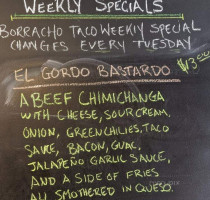 WEEKLY SPECIALS
BORRACHO TACO WEEKLY SPECIAL
CHANGES EVERY TUESDAY
EL GORDO BASTARDO
A BEEF CHIMICHANGA
WITH CHEESE, SOUR CREAM,
ONION, GREEN CHILIES, TACO
SAUCE, BACON, GUAC,
JALAPEÑO GARLIC SAUCE,
AND A SIDE OF FRIES
ALL SMOTHERED IN QUESO.